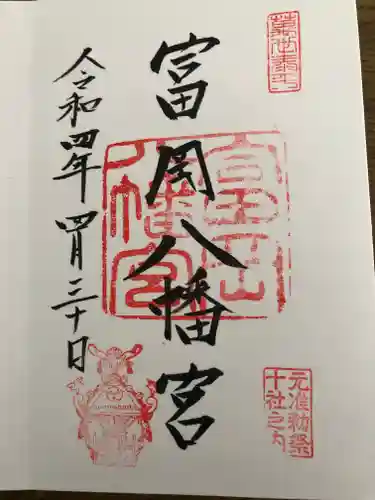 萬世泰平
富岡八幡宮
富岡八幡宮
元准勅祭
十社之内
令和四年 四月三十日